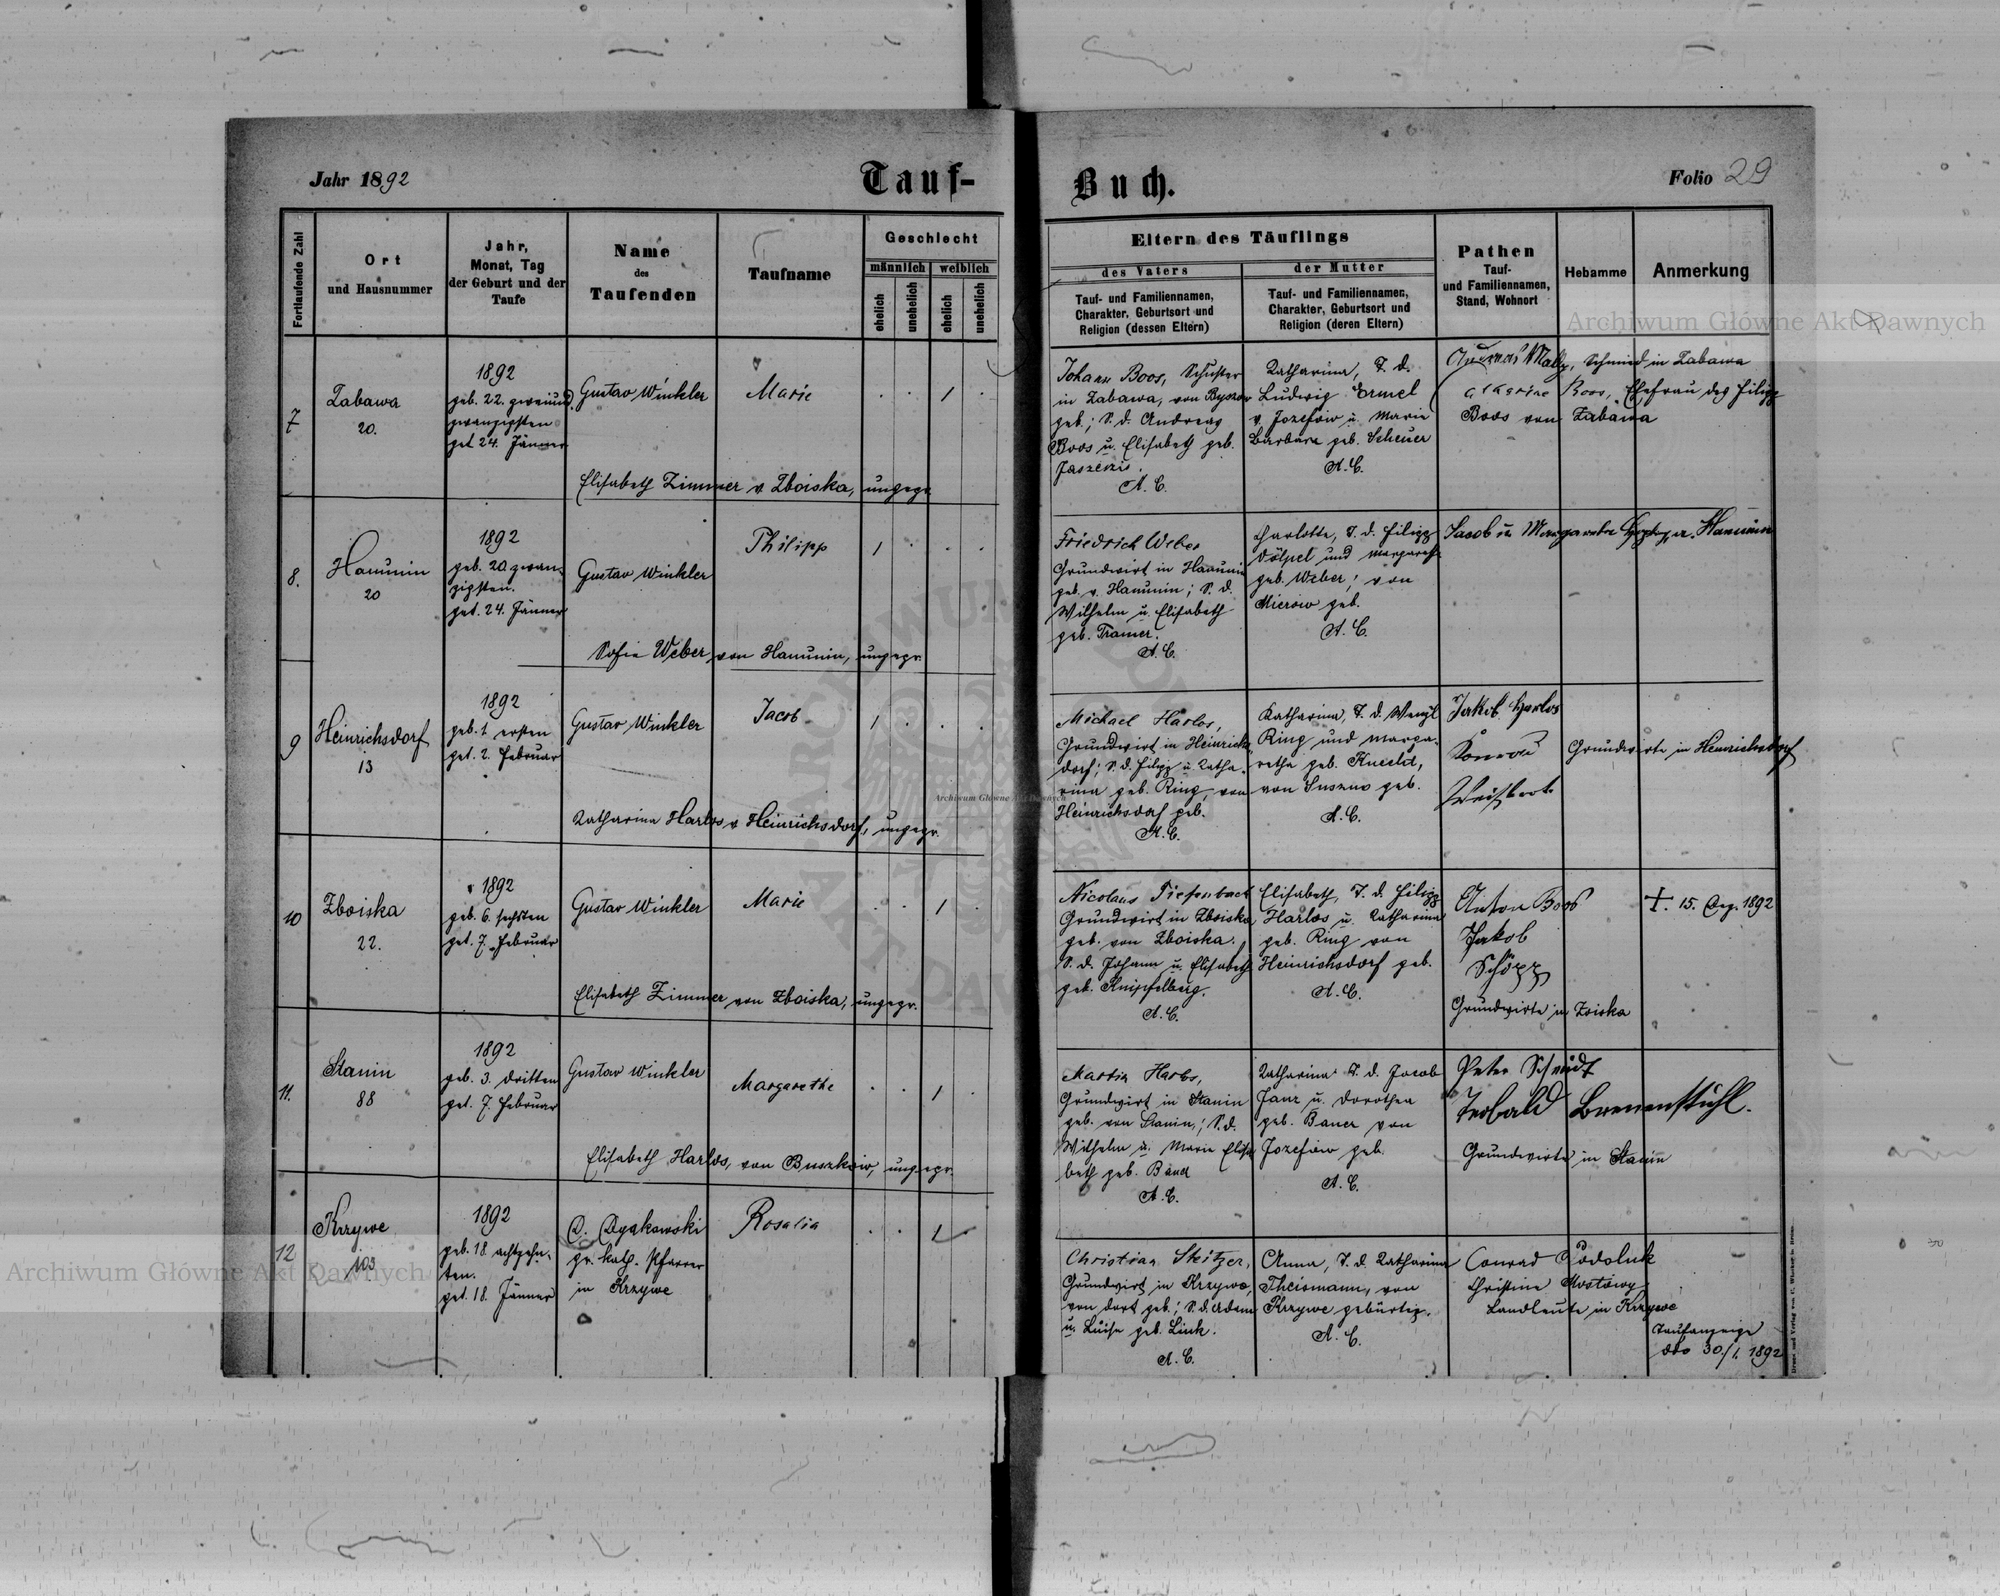 Jahr 1892
Tauf-
Buch.
Folio 29
Fortlaufende Zahl
Ort
und Hausnummer
Jahr,
Monat, Tag
der Geburt und der
Taufe
Name
des
Taufenden
Taufname
Geschlecht
männlich
weiblich
ehelich
unehelich
ehelich
unehelich
Eltern des Täuflings
des Vaters
Tauf- und Familiennamen,
Charakter, Geburtsort und
Religion (dessen Eltern)
der Mutter
Tauf- und Familiennamen,
Charakter, Geburtsort und
Religion (deren Eltern)
Pathen
Tauf-
und Familiennamen,
Stand, Wohnort
Hebamme
Anmerkung
7
Zabawa
20.
1892
geb. 22. zweiund
zwanzigsten
get 24. Jänner
Gustav Winkler
Marie
1
Elisabeth Zimmer v. Zboiska, ungepr.
Johann Boos, Schuster
in Zabawa, von
geb; S. d. Andreas
Boos u. Elisabeth geb.
A. C.
Katharina, T. d.
Ludwig Ermel
v. Jozefów u. Marie
Barbara geb. Scheuer
A. C.
Schmied in Zabawa
Boos, Ehefrau des Filipp
Boos von Zabawa
8.
Hanunin
20
1892
geb. 20 zwan-
zigsten.
get. 24. Jänner
Gustav Winkler
Philipp
1
Sofie Weber von Hanunin, ungepr.
Friedrich Weber
Grundwirt in Hanunin
geb. v. Hanunin; S. d.
Wilhelm u. Elisabeth
geb. Tramer.
A. C.
Charlotte, T. d. Filipp
Völpel und Margareth
geb. Weber; von
Mierów geb.
A. C.
Jacob u. Margaretha Hanunin
9
Heinrichsdorf
13
1892
geb. 1. ersten
get. 2. Februar
Gustav Winkler
Jacob
1
Katharina Harlos v. Heinrichsdorf, ungepr.
Michael Harlos,
Grundwirt in Heinrichs
dorf; S. d. Filipp u. Katha-
rina geb. Ring, von
Heinrichsdorf geb.
A. C.
Katharina, T. d. Wenzl
Ring und Marga-
retha geb.
von Suszno geb.
A. C.
Jakob Harlos
Konrad
Grundwirte in Heinrichsdorf
10
Zboiska
22.
1892
geb. 6. sechsten
get. 7. Februar
Gustav Winkler
Marie
1
Elisabeth Zimmer von Zboiska, ungepr.
Nicolaus Tiefenbach
Grundwirt in Zboiska
geb. von Zboiska.
S. d. Johann u. Elisabeth
geb. Knipfelberg.
A. C.
Elisabeth, T. d. Filipp
Harlos u. Katharina
geb. Ring von
Heinrichsdorf geb.
A. C.
Anton Boos
Jakob
Schöpp
Grundwirte in Zoiska
+. 15. Aug. 1892
11.
Stanin
88
1892
geb. 3. dritten
get. 7. Februar
Gustav Winkler
Margarethe
1
Elisabeth Harlos, von Buszków, ungepr.
Martin Harlos,
Grundwirt in Stanin
geb. von Stanin; S. d.
Wilhelm u. Marie Elisa
beth geb.
A. C.
Katharina T. d. Jacob
Janz u. Dorothea
geb. Bauer von
Jozefów geb.
A. C.
Peter Schmidt
Teobald Brenenstuhl.
Grundwirte in Stanin
12
Krzywe
103
1892
geb. 18. achtzehn-
ten.
get. 18. Jänner
gr. kath. Pfarrer
in Krzywe
Rosalia
1
Christian Steitzer,
Grundwirt in Krzywe,
von dort geb.; S. d. Adam
u. Luise geb. Link.
A. C.
Anna, T. d. Katharina
Theismann, von
Krzywe gebürtig.
A. C.
Conrad Podoluk
Christine Mostowy
Landleute in Krzywe
Taufanzeige
ddo 30./1. 1892
Archiwum Główne Akt Dawnych
Archiwum Główne Akt Dawnych
Archiwum Główne Akt Dawnych